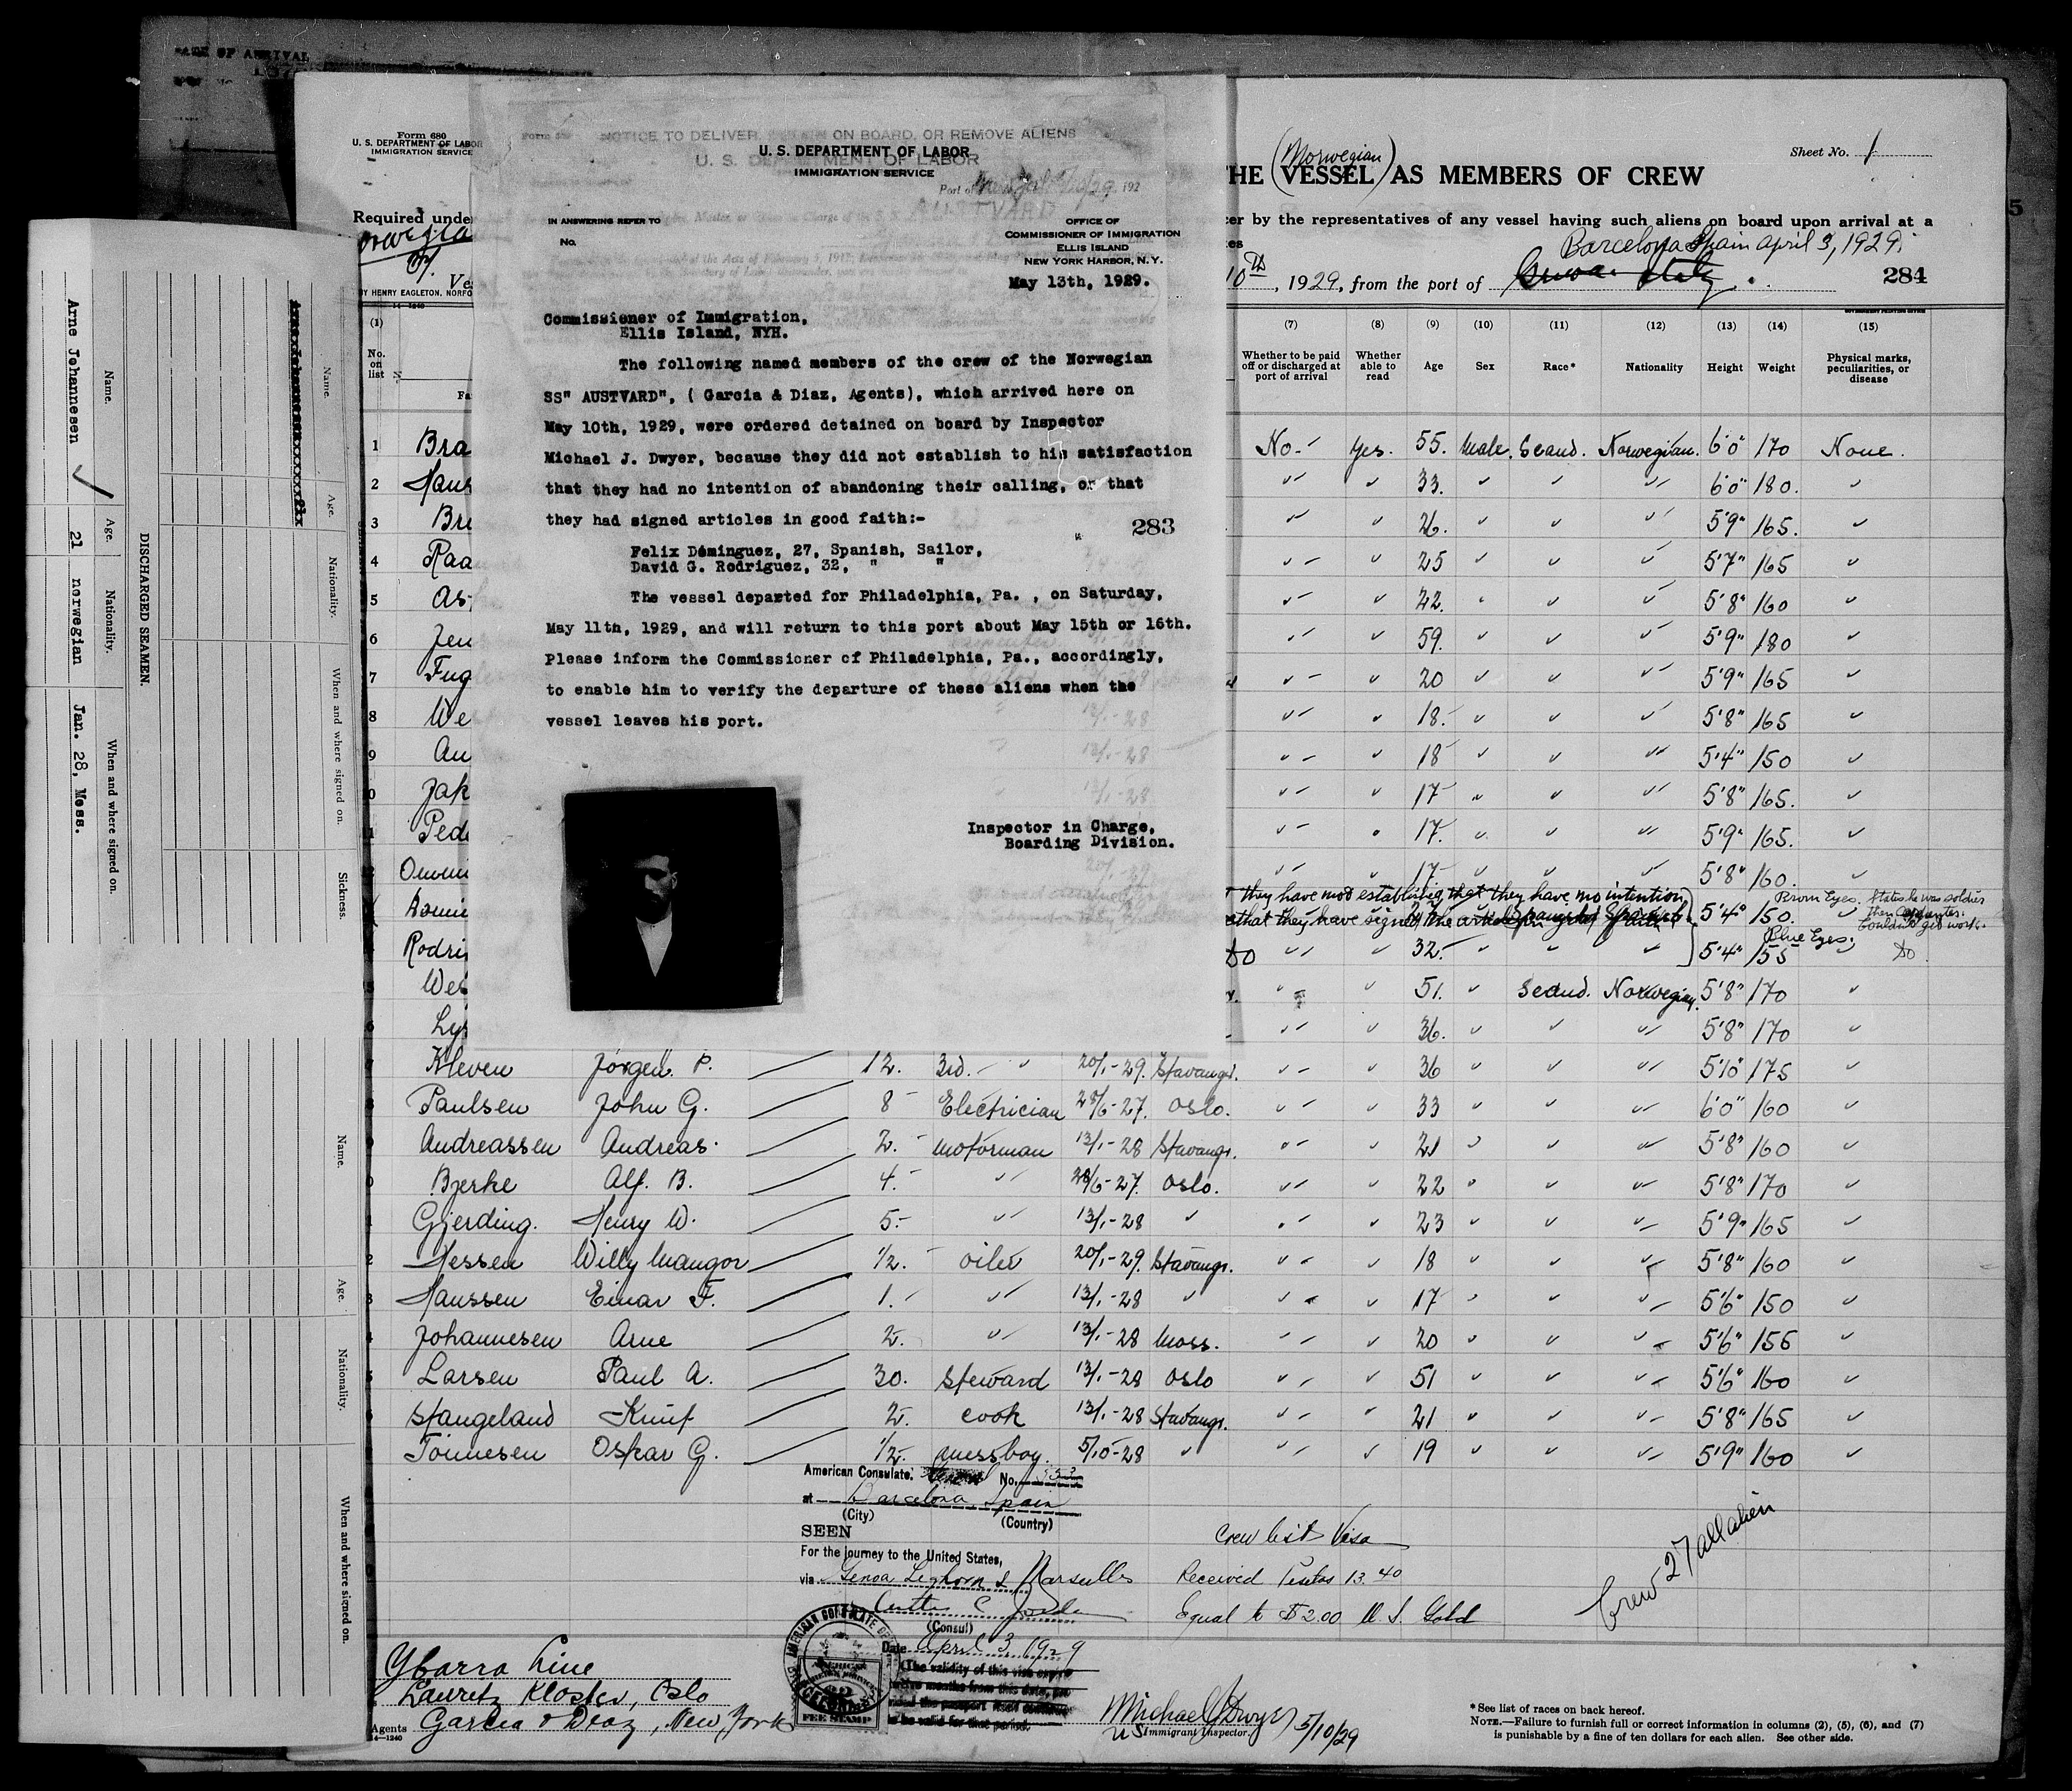 Form 680
U. S. DEPARTMENT OF LABOR
IMMIGRATION SERVICE
Required unde
BY HENRY EAGLETON, NORFO
14—1240
(1)
No.
on
list
NOTICE TO DELIVER, ON BOARD, OR REMOVE ALIENS
U. S. DEPARTMENT OF LABOR
U. S. DEPARTMENT OF LABOR
IMMIGRATION SERVICE
Port of
192
IN ANSWERING REFER TO
No.
OFFICE OF
COMMISSIONER OF IMMIGRATION
ELLIS ISLAND
NEW YORK HARBOR, N. Y.
May 13th, 1929.
Commissioner of Immigration,
Ellis Island, NYH.
The following named members of the crew of the Norwegian
SS" AUSTVARD", ( Garcia & Diaz, Agents), which arrived here on
May 10th, 1929, were ordered detained on board by Inspector
Michael J. Dwyer, because they did not establish to his satisfaction
that they had no intention of abandoning their calling, or that
they had signed articles in good faith:-
283
Felix Dominguez, 27, Spanish, Sailor,
David G. Rodriguez, 32, " "
The vessel departed for Philadelphia, Pa. , on Saturday,
May 11th, 1929, and will return to this port about May 15th or 16th.
Please inform the Commissioner of Philadelphia, Pa., accordingly,
to enable him to verify the departure of these aliens when the
vessel leaves his port.
Inspector in Charge,
Boarding Division.
Sheet No. 1
THE (Norwegian) VESSEL AS MEMBERS OF CREW
er by the representatives of any vessel having such aliens on board upon arrival at a
Barcelona Spain April 3, 1929.
10th, 1929, from the port of
284
(7) (8) (9) (10) (11) (12) (13) (14) (15)
Whether to be paid off or discharged at port of arrival
Whether able to read
Age
Sex
Race*
Nationality
Height
Weight
Physical marks, peculiarities, or disease
1 Bra No - Yes. 55. Male. Scand. Norwegian. 6'0" 170 None.
2 Hans " " 33. " " " 6'0" 180. "
3 Bre " " 26. " " " 5'9" 165. "
4 Raa " " 25 " " " 5'7" 165 "
5 As " " 42. " " " 5'8" 160 "
6 Jen " " 59. " " " 5'9" 180 "
7 Fug " " 20 " " " 5'9" 165 "
8 We " " 18. " " " 5'8" 165 "
9 An " " 18 " " " 5'4" 150 "
10 Jak " " 17 " " " 5'8" 165. "
11 Ped " " 17. " " " 5'9" 165. "
" " 17 " " " 5'8" 160. "
they have not establishing that they have no intention
that they have signed the
5'4" 150. Brown Eyes. States he was soldier
Couldn't get work.
Rodri Do " " 32. " " " 5'4" 155 Blue Eyes. Do
Wes " " 51. " Scand. Norwegian. 5'8" 170 "
" " 36. " " " 5'8" 170 "
7 Kleven Jorgen. P. 12. 3rd. " 20/1-29. Stavangr. " " 36 " " " 5'10" 175 "
Paulsen John G. 8 Electrician 28/6-27. Oslo. " " 33 " " " 6'0" 160 "
Andreassen Andreas 2. Motorman 13/1-28 Stavangr. " " 21 " " " 5'8" 160 "
Bjerke Alf. B. 4. " 28/6-27. Oslo. " " 22 " " " 5'8" 170 "
Gjerding. Henry W. 5. " 13/1-28 " " " 23 " " " 5'9" 165 "
2 Hessen Willy Mangor 1/2. oiler 20/1-29. Stavangr. " " 18 " " " 5'8" 160 "
3 Hanssen Einar F. 1. " 13/1-28 " " " 17 " " " 5'6" 150 "
Johannesen Arne 2. " 13/1-28 Moss. " " 20 " " " 5'6" 156 "
Larsen Paul A. 30. Steward 13/1-28 Oslo " " 51 " " " 5'6" 160 "
Stangeland Knut 2. cook 13/1-28 Stavangr. " " 21 " " " 5'8" 165 "
Tonnesen Oskar G. 1/2. messboy. 5/10-28 " " " 19 " " " 5'9" 160 "
American Consulate. No.
at Barcelona, Spain
(City) (Country)
SEEN
For the journey to the United States,
via Genoa Leghorn & Marseilles
(Consul)
Date April 3 1929
FEE STAMP
Crew list Visa
Received Pesetas 13.40
Equal to $2.00 U. S. Gold
Crew 27 all alien
Ybarra Line
Lauritz Kloster, Oslo
Agents Garcia & Diaz, New York
14—1240
Michael J Dwyer 5/10/29
US Immigrant Inspector.
*See list of races on back hereof.
NOTE.—Failure to furnish full or correct information in columns (2), (5), (6), and (7)
is punishable by a fine of ten dollars for each alien. See other side.
DISCHARGED SEAMEN.
Name. Age. Nationality. When and where signed on.
Arne Johannesen 21 norwegian Jan. 28, Moss.
Name. Age. Nationality. When and where signed on. Sickness.
Name. Age. Nationality. When and where signed on.